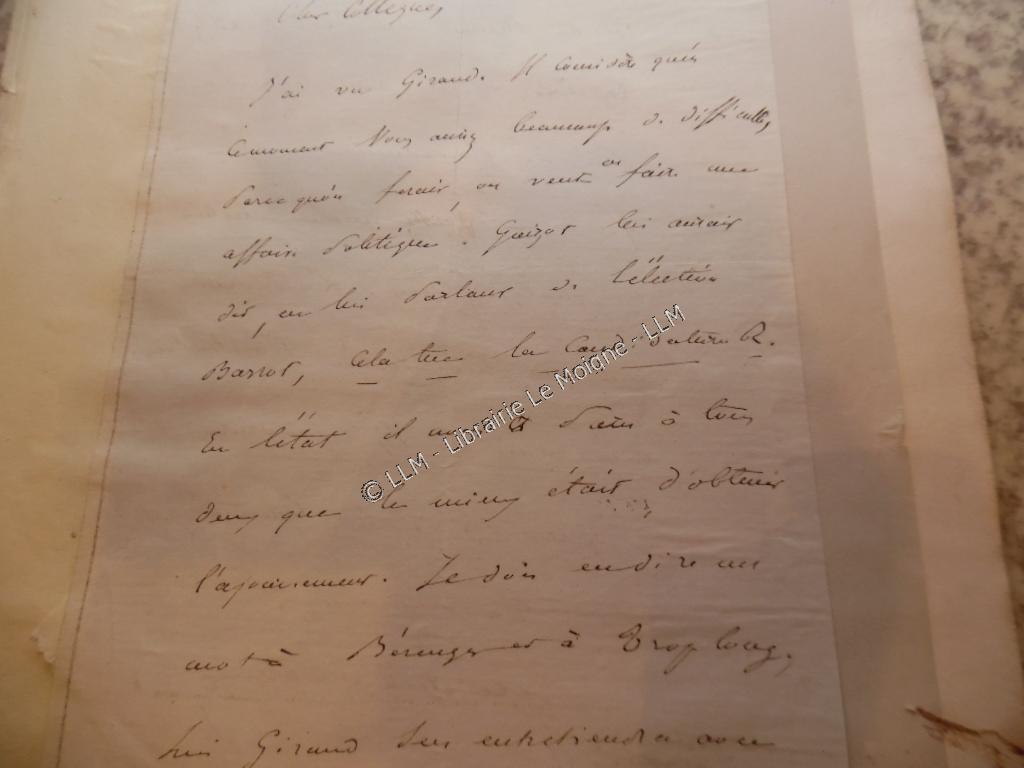 Cher Collègue,
J'ai vu Giraud. Il considère qu'en
ce moment vous auriez beaucoup de difficultés
parce qu'on ferait, ou veut en faire une
affaire politique. Guizot lui aurait
dit, en lui parlant de l'élection
Barrot, cela tue la cand.
En l'état il nous à tous
deux que le mieux était d'obtenir
l'ajournement. Je dois en dire un
mot à Bérenger et à Troplong,
Giraud s'en entretiendra avec
© LLM - Librairie Le Moigne - LLM